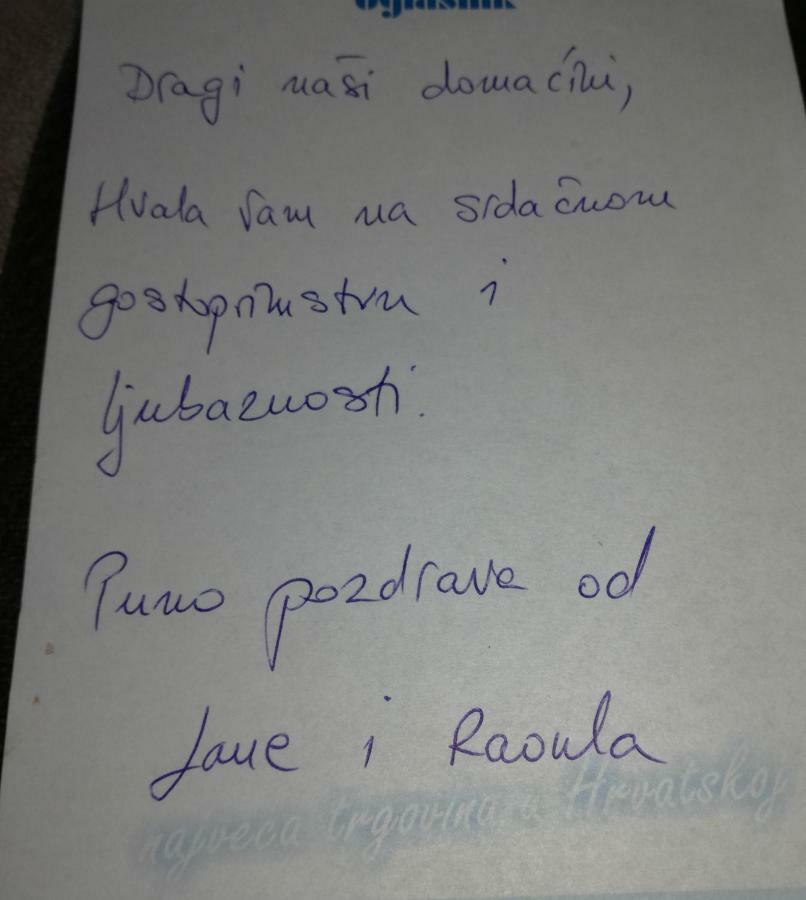 oglasnik
Dragi naši domaćini,
Hvala Vam na srdačnom
gostoprimstvu i
ljubaznosti.
Puno pozdrava od
Jane i Raoula
najveća trgovina u Hrvatskoj